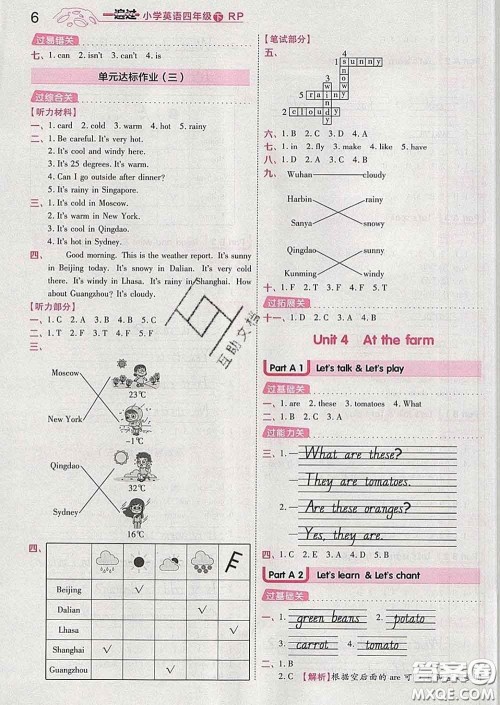 6
一遍过 小学英语四年级 下 RP
过易错关
七、1. can 2. isn't 3. can't 4. is
单元达标作业(三)
过综合关
【听力材料】
一、1. card 2. cold 3. warm 4. hot 5. rainy
二、1. Be careful. It's very hot.
2. It's cool and windy here.
3. It's 25 degrees. It's warm.
4. Can I go outside after dinner?
5. It's rainy in Singapore.
三、1. It's cold in Moscow.
2. It's warm in New York.
3. It's cool in Qingdao.
4. It's hot in Sydney.
四、 Good morning. This is the weather report. It's sunny
in Beijing today. It's snowy in Dalian. It's very cold
there. It's windy in Lhasa. It's rainy in Shanghai. How
about Guangzhou? It's cloudy.
【听力部分】
一、1. C 2. A 3. B 4. C 5. B
二、1. T 2. F 3. T 4. F 5. F
三、
Moscow
23℃
New York
-1℃
Qingdao
32℃
Sydney
16℃
四、
Beijing √
Dalian √
Lhasa √
Shanghai √
Guangzhou √
【笔试部分】
五、
1 sunny
5 rainy
2 cloudy
六、1. B 2. C 3. D 4. A
七、1. in 2. fly 3. make 4. like 5. have
八、1. C 2. C 3. B 4. C 5. A
九、
Wuhan cloudy
Harbin rainy
Sanya snowy
Qingdao sunny
Kunming windy
十、1. F 2. F 3. T 4. F 5. T
过拓展关
十一、1. D 2. C 3. B 4. A
Unit 4 At the farm
Part A 1 Let's talk & Let's play
过基础关
一、1. are 2. these 3. tomatoes 4. What
过能力关
三、1. What are these?
They are tomatoes.
2. Are these oranges?
Yes, they are.
四、1. C 2. E 3. A 4. D 5. B
Part A 2 Let's learn & Let's chant
过基础关
一、1. green beans 2. potato
3. carrot 4. tomato
二、1. B
2. C 【解析】根据空后面的 are 可
互助文档
答案圈
MXQE.COM